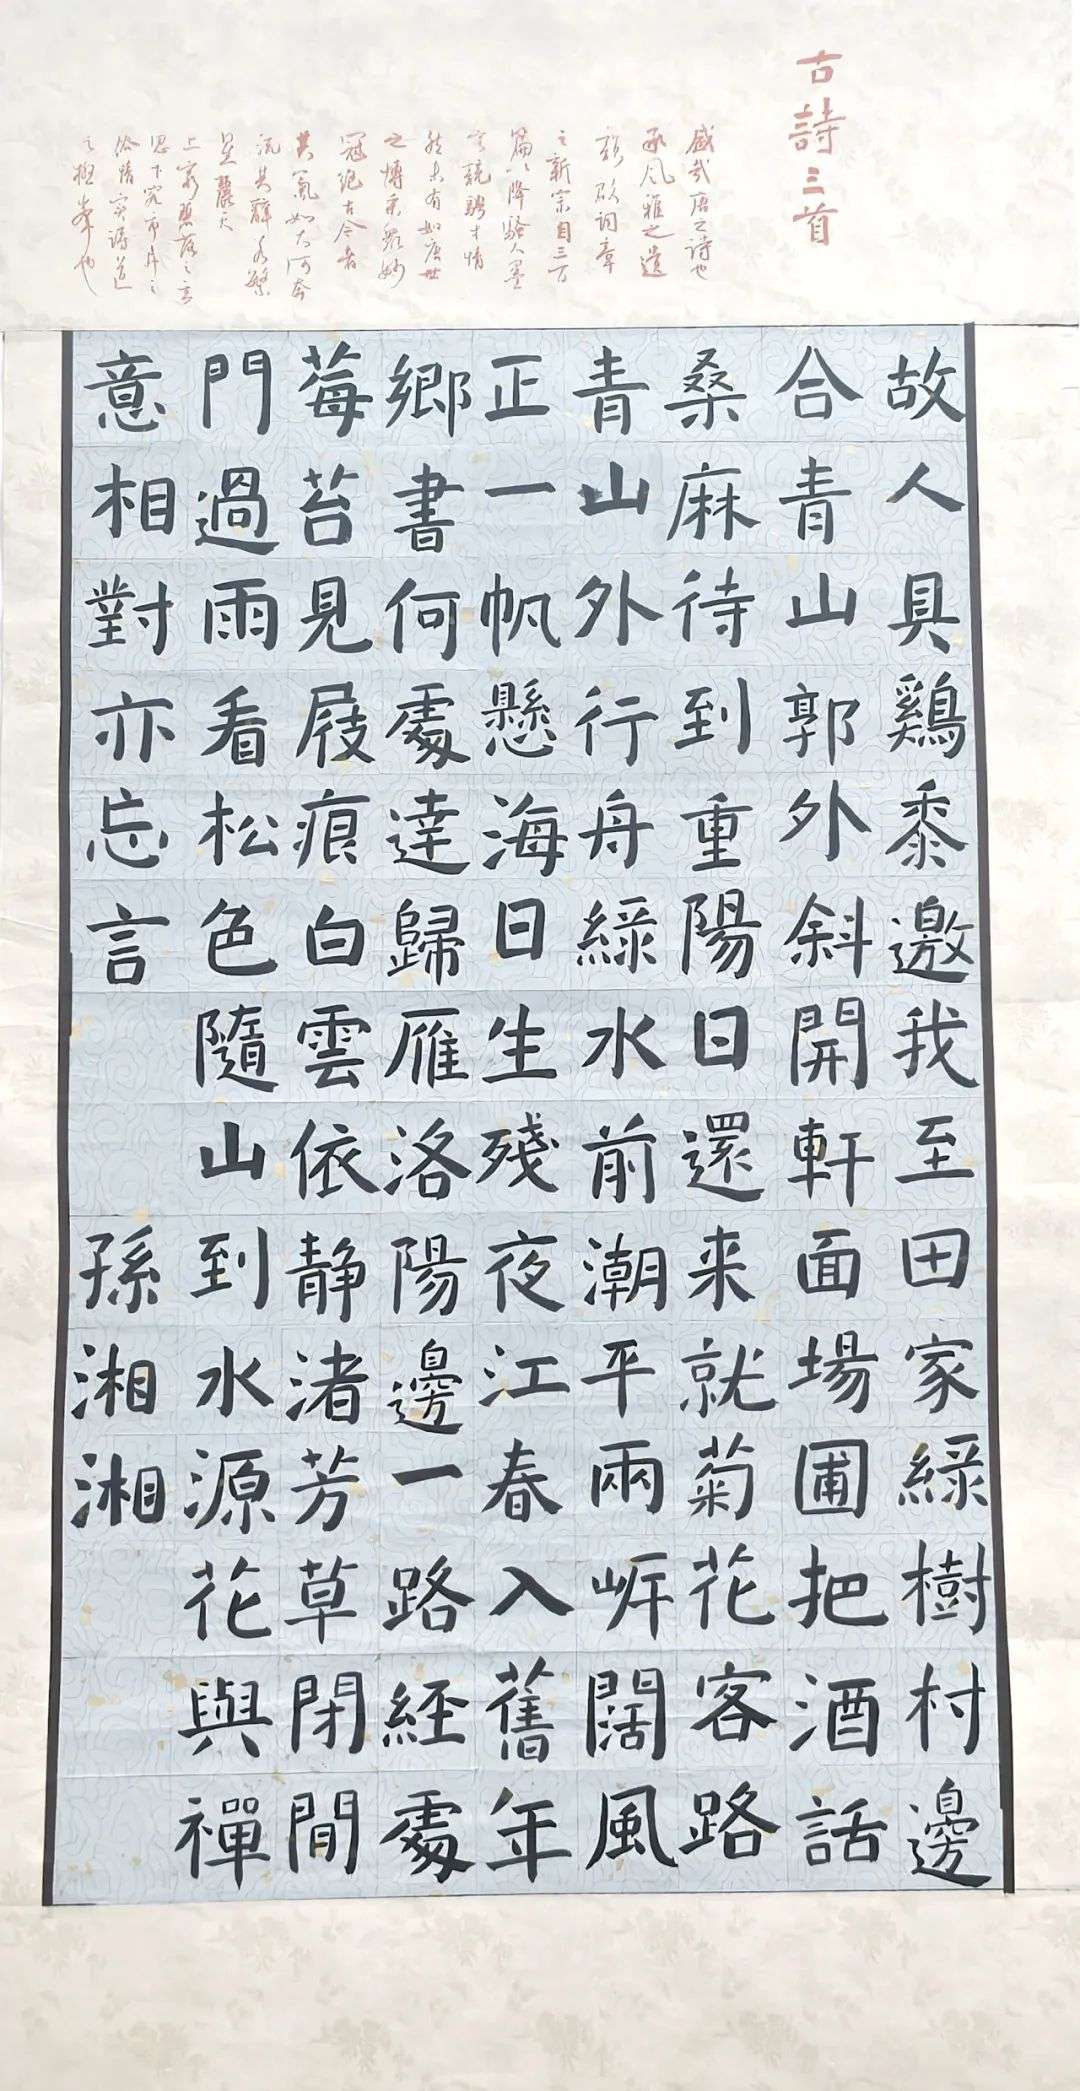 古詩三首
盛哉唐之詩也
承風雅之遺
啟詞章
之新宗自三百
篇以降騷人墨
客競騁才情
然未有如唐世
之博采眾妙
冠絕古今者
其氣如大河奔
流其辭若繁
星麗天
上窮碧落之玄
思下究市井之
俗情實詩道
之極峯也
故人具鷄黍邀我至田家綠樹村邊
合青山郭外斜開軒面場圃把酒話
桑麻待到重陽日還来就菊花客路
青山外行舟綠水前潮平兩岍闊風
正一帆懸海日生殘夜江春入舊年
鄉書何處達歸雁洛陽邊一路經處
莓苔見屐痕白雲依静渚芳草閉閒
門過雨看松色隨山到水源花與禪
意相對亦忘言
孫湘湘